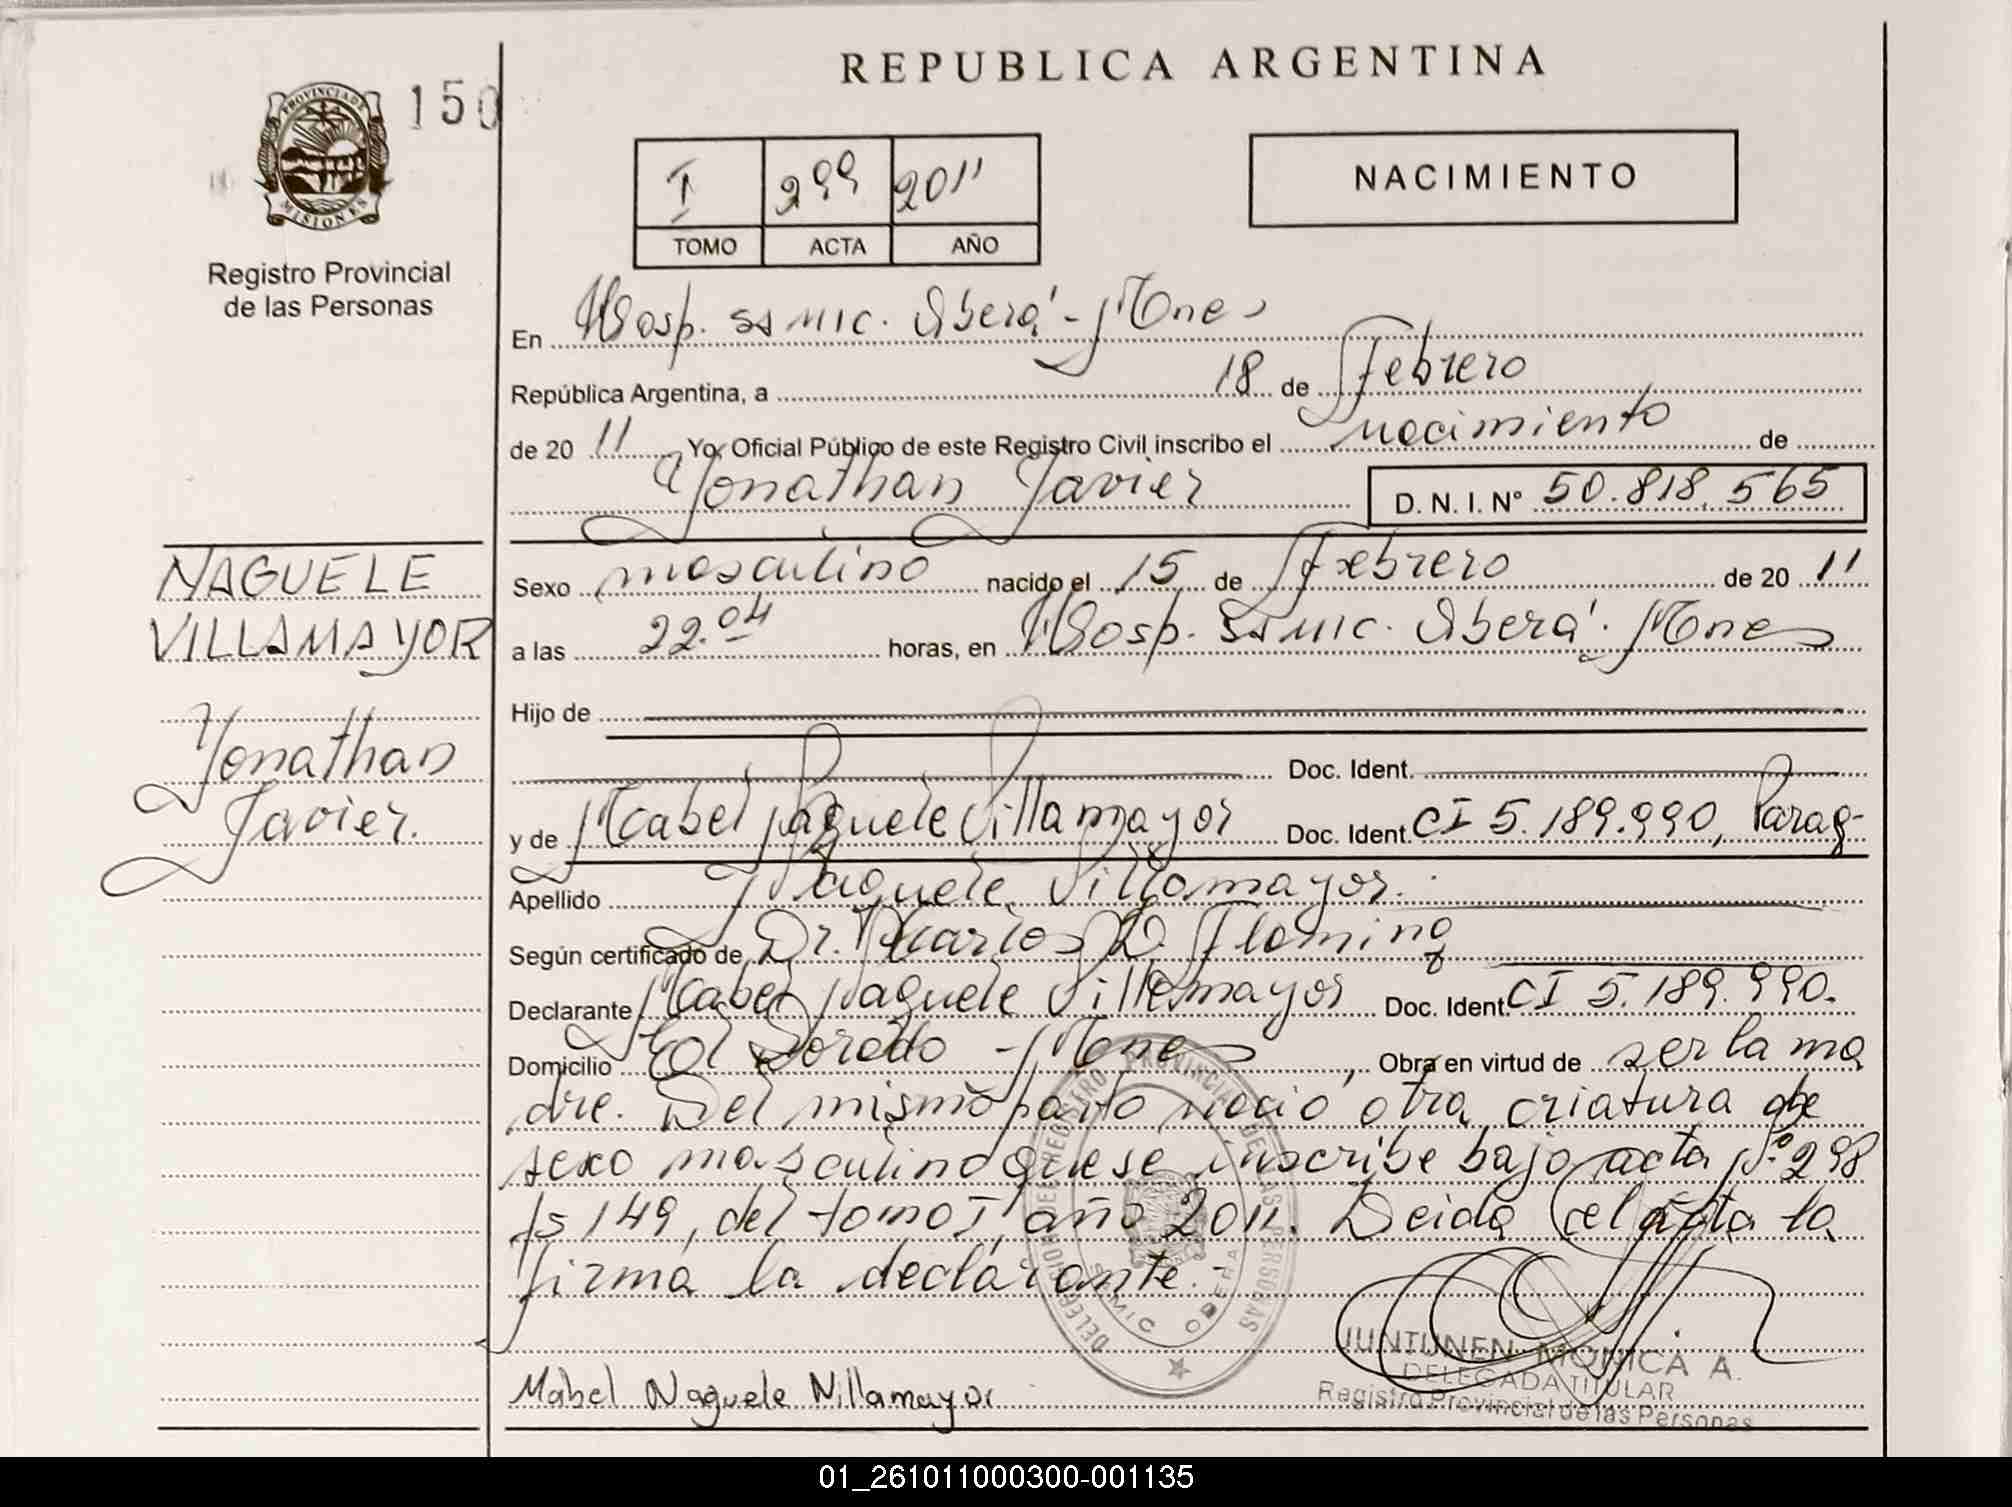 REPUBLICA ARGENTINA
PROVINCIA DE
MISIONES
150
Registro Provincial
de las Personas
I 299 2011
TOMO ACTA AÑO
NACIMIENTO
En Hosp. SAMIC. Oberá - Mnes
República Argentina, a 18 de Febrero
de 20 11 Yo, Oficial Público de este Registro Civil inscribo el nacimiento de
Yonathan Javier D. N. I. N° 50.818.565
NAGUELE
VILLAMAYOR
Yonathan
Javier.
Sexo masculino nacido el 15 de Febrero de 20 11
a las 22.04 horas, en Hosp. SAMIC. Oberá. Mnes
Hijo de
Doc. Ident.
y de Mabel Naguele Villamayor Doc. Ident. CI 5.189.990, Parag-
Apellido Naguele Villamayor.
Según certificado de Dr. Carlos D. Fleming
Declarante Mabel Naguele Villamayor Doc. Ident. CI 5.189.990.
Domicilio El Dorado - Mnes, Obra en virtud de ser la ma
dre. Del mismo parto nació otra criatura de
sexo masculino que se inscribe bajo acta N° 298
fs 149, del tomo I año 2011. Leida el acta la
firma la declarante.-
DELEGACION DEL REGISTRO PROVINCIAL DE LAS PERSONAS
SAMIC OBERA
Mabel Naguele Villamayor
JUNTUNEN MONICA A.
DELEGADA TITULAR
Registro Provincial de las Personas
01_261011000300-001135